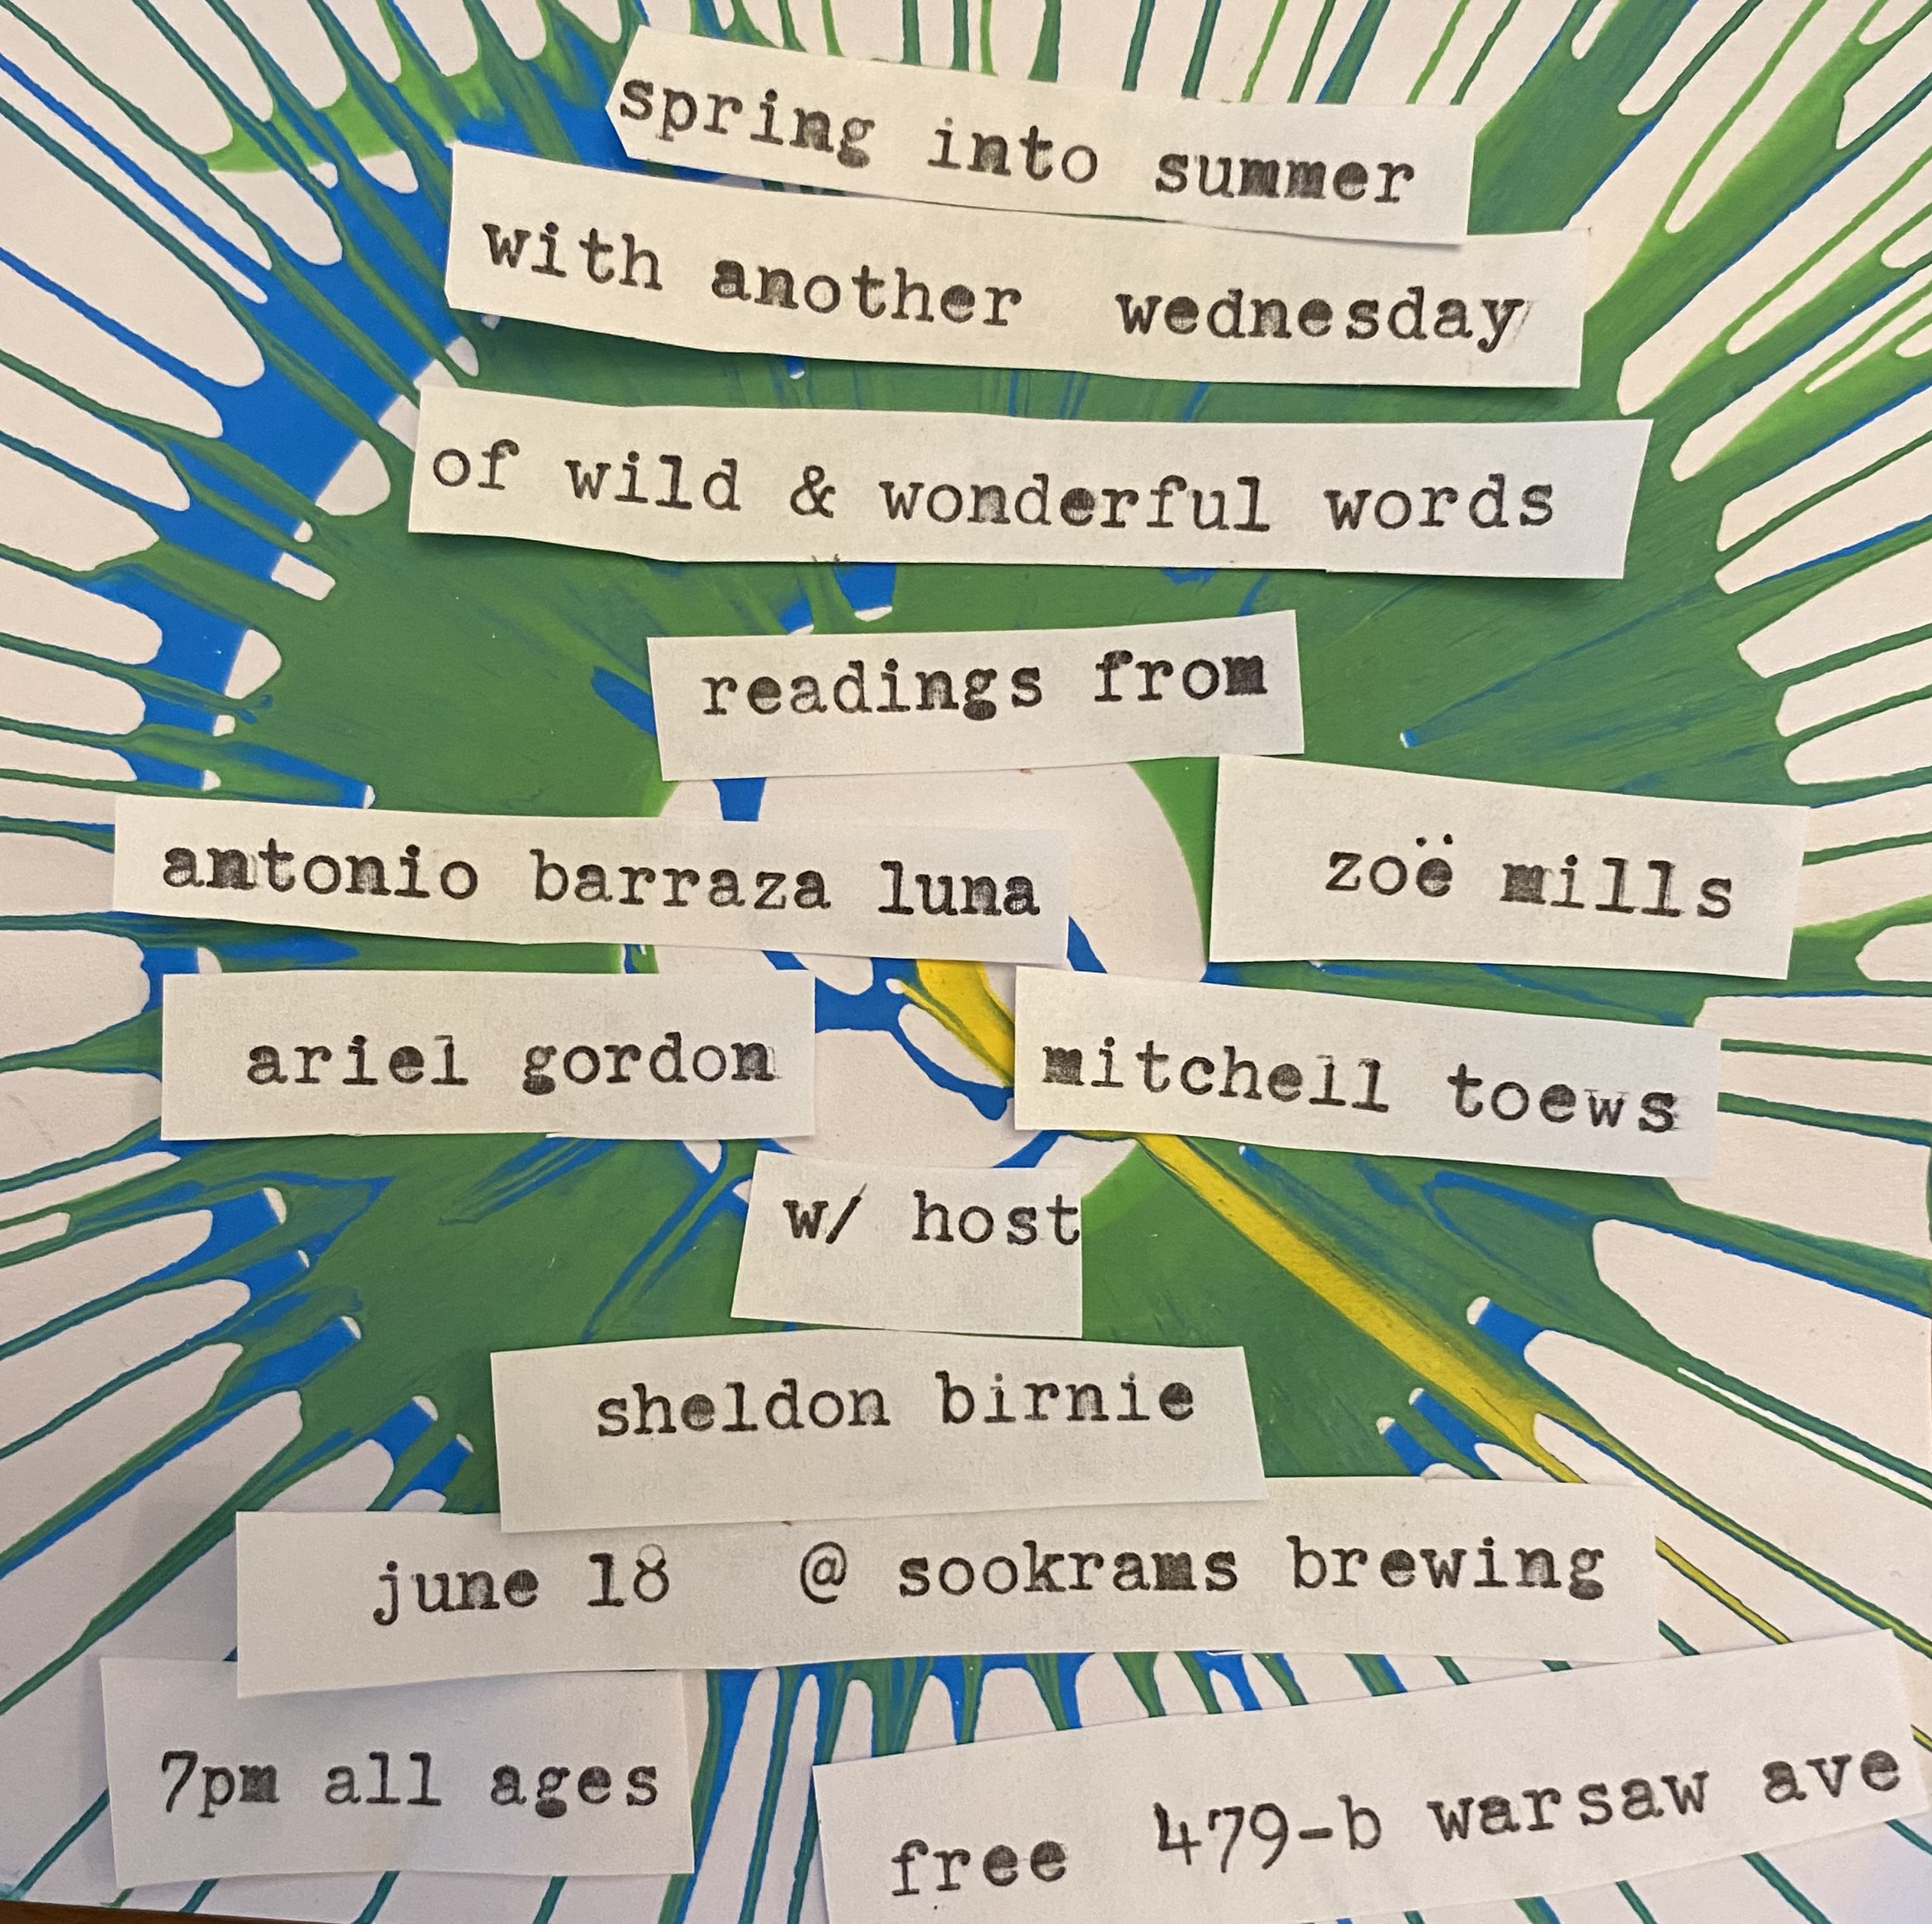 spring into summer
with another wednesday
of wild & wonderful words
readings from
antonio barraza luna
zoë mills
ariel gordon
mitchell toews
w/ host
sheldon birnie
june 18 @ sookrams brewing
7pm all ages
free 479-b warsaw ave